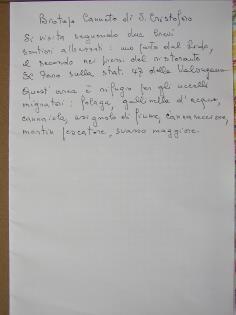 Biotopo Canneto di S. Cristoforo
Si visita seguendo due brevi
sentieri alberati: uno parte dal lido,
il secondo nei pressi del ristorante
sulla stat. 47 della Valsugana
Quest'area è rifugio per gli uccelli
migratori: folaga, gallinella d'acqua,
cannaiola, usignolo di fiume, cannareccione,
martin pescatore, svasso maggiore.